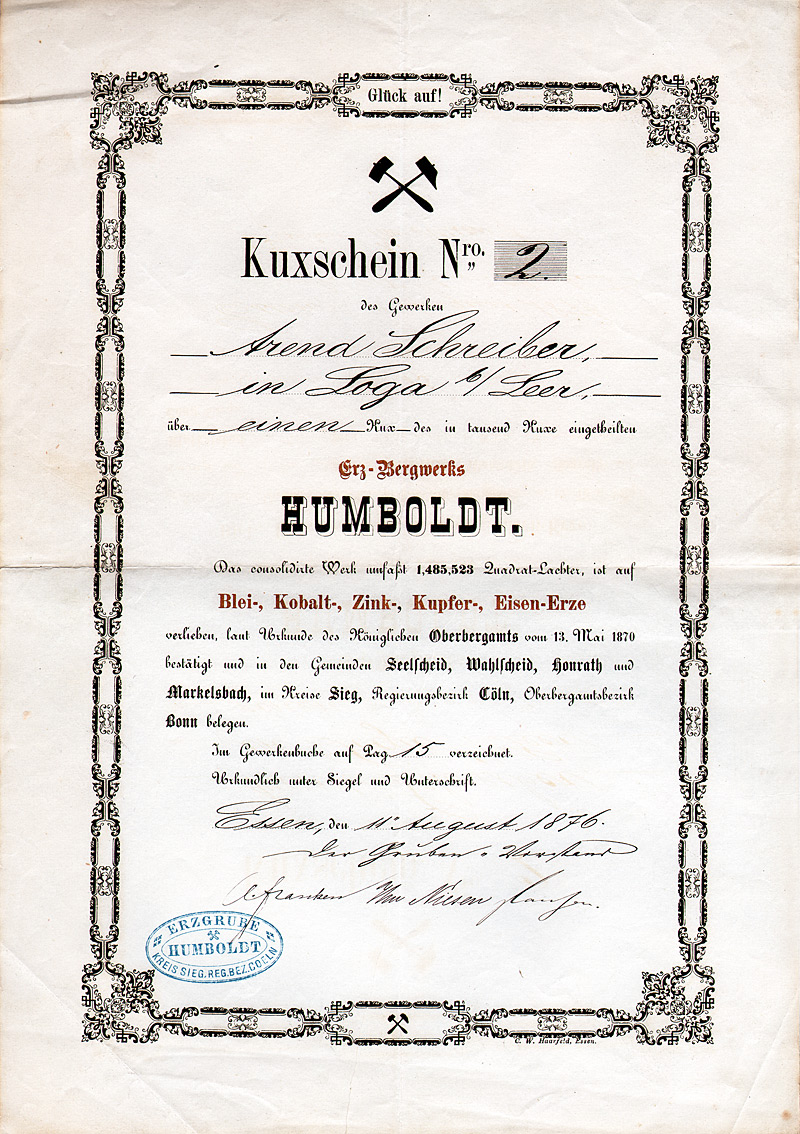 Glück auf!
Kuxschein Nro. 2.
des Gewerken
Arend Schreiber,
in Loga b/Leer,
über einen Kux des in tausend Kuxe eingetheilten
Erz-Bergwerks
HUMBOLDT.
Das consolidirte Werk umfaßt 1,485,523 Quadrat-Lachter, ist auf
Blei-, Kobalt-, Zink-, Kupfer-, Eisen-Erze
verliehen, laut Urkunde des Königlichen Oberbergamts vom 13. Mai 1870
bestätigt und in den Gemeinden Seelscheid, Wahlscheid, Honrath und
Markelsbach, im Kreise Sieg, Regierungsbezirk Cöln, Oberbergamtsbezirk
Bonn belegen.
Im Gewerkenbuche auf Pag. 15 verzeichnet.
Urkundlich unter Siegel und Unterschrift.
Essen, den 11 August 1876.
Der Gruben-Vorstand
Franken Niesen
ERZGRUBE
HUMBOLDT
KREIS SIEG.REG.BEZ.COELN
C. W. Haarfeld, Essen.